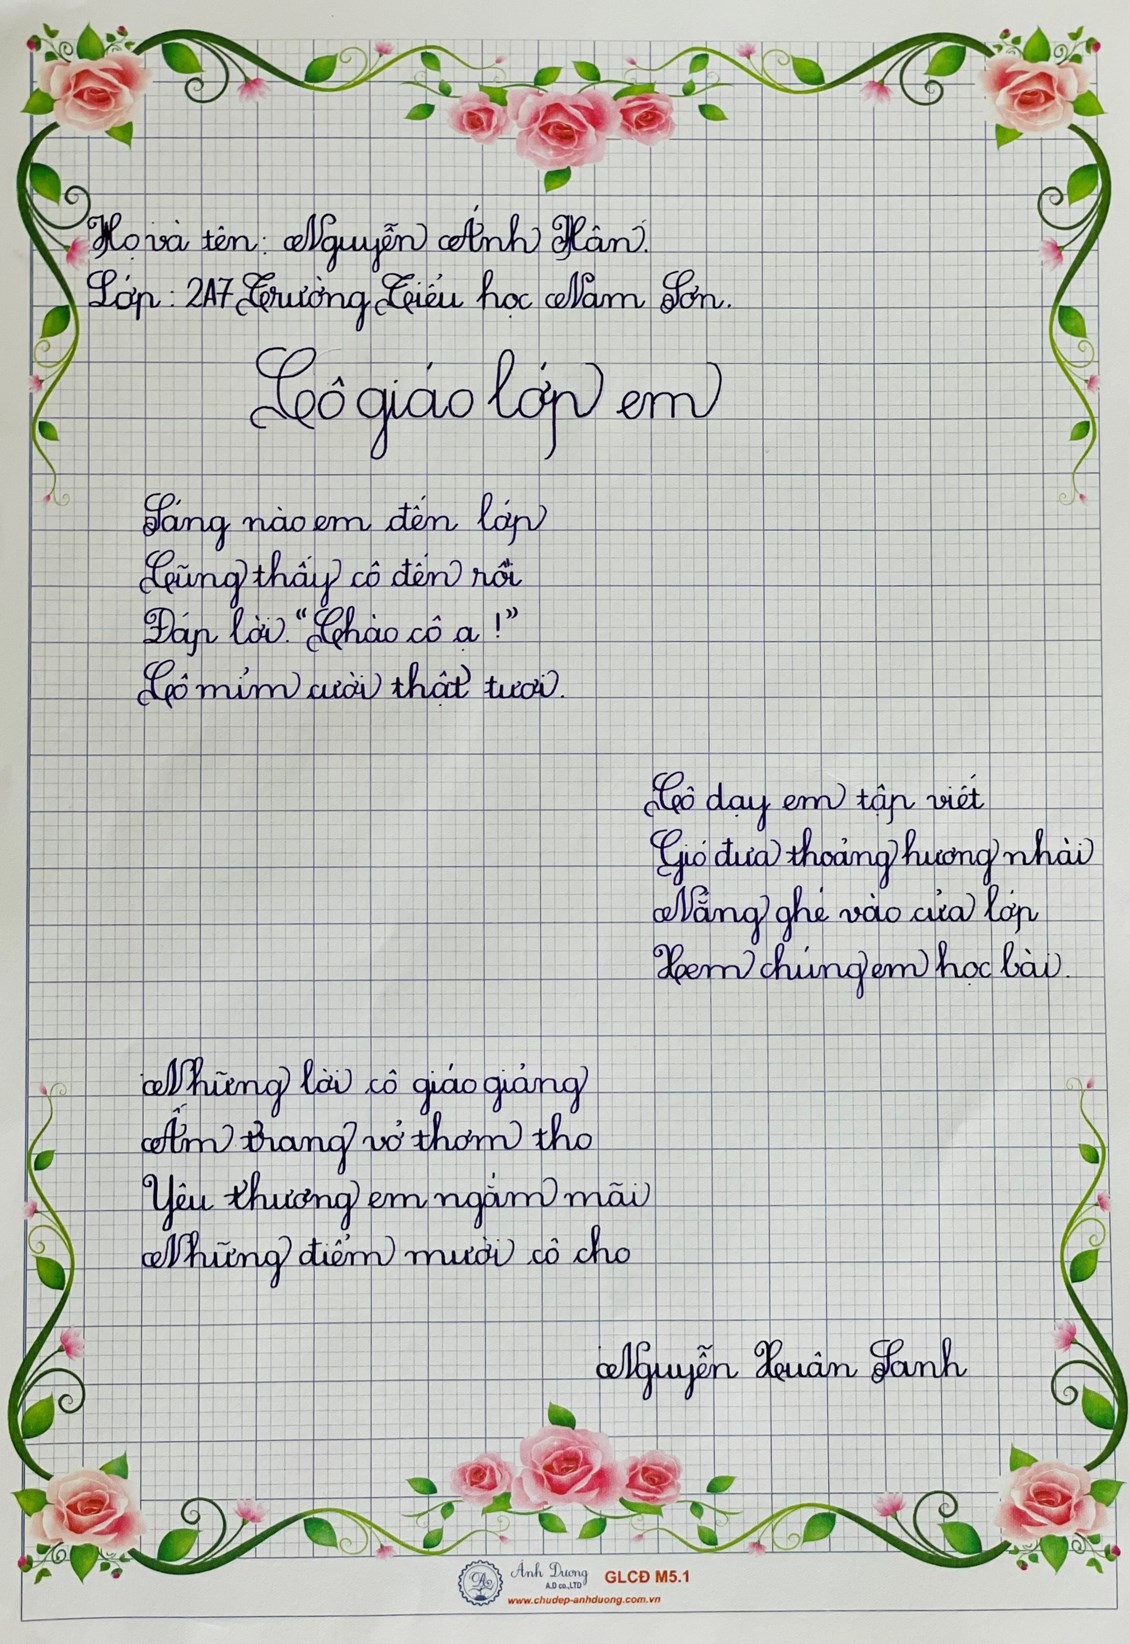 Họ và tên: Nguyễn Ánh Hân.
Lớp: 2A7 Trường Tiểu học Nam Sơn.
Cô giáo lớp em
Sáng nào em đến lớp
Cũng thấy cô đến rồi
Đáp lời "Chào cô ạ!"
Cô mỉm cười thật tươi.
Cô dạy em tập viết
Gió đưa thoảng hương nhài
Nắng ghé vào cửa lớp
Xem chúng em học bài.
Những lời cô giáo giảng
Ấm trang vở thơm tho
Yêu thương em ngắm mãi
Những điểm mười cô cho
Nguyễn Xuân Sanh
Ánh Dương
A.D co.,LTD
GLCĐ M5.1
www.chudep-anhduong.com.vn